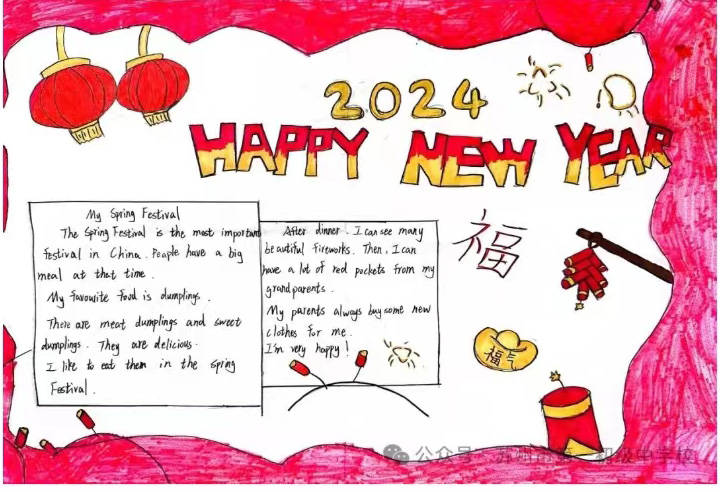 2024
HAPPY NEW YEAR
My Spring Festival
The Spring Festival is the most important
festival in China. People have a big
meal at that time.
My favourite food is dumplings.
There are meat dumplings and sweet
dumplings. They are delicious.
I like to eat them in the Spring
Festival.
After dinner. I can see many
beautiful fireworks. Then, I can
have a lot of red pockets from my
grandparents.
My parents always buy some new
clothes for me.
I'm very happy!
福
福气
公众号
初级中学校